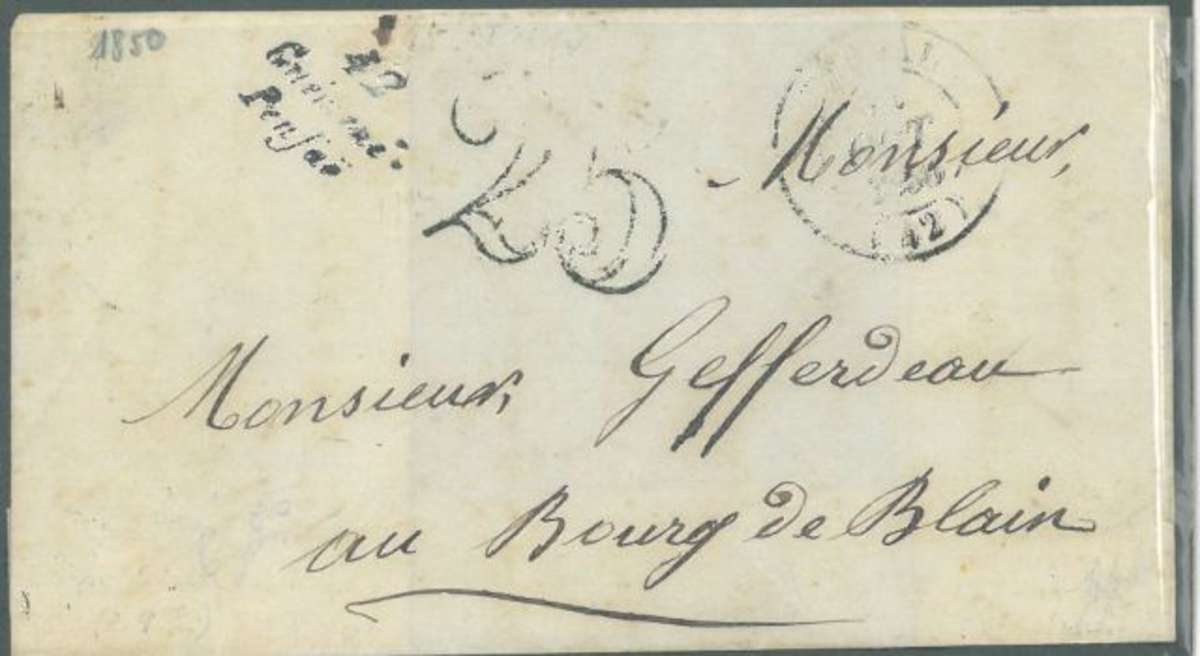 1850
42
Guémené-
Penfao
25
(42)
Monsieur,
Monsieur, Gefferdeau
au Bourg de Blain